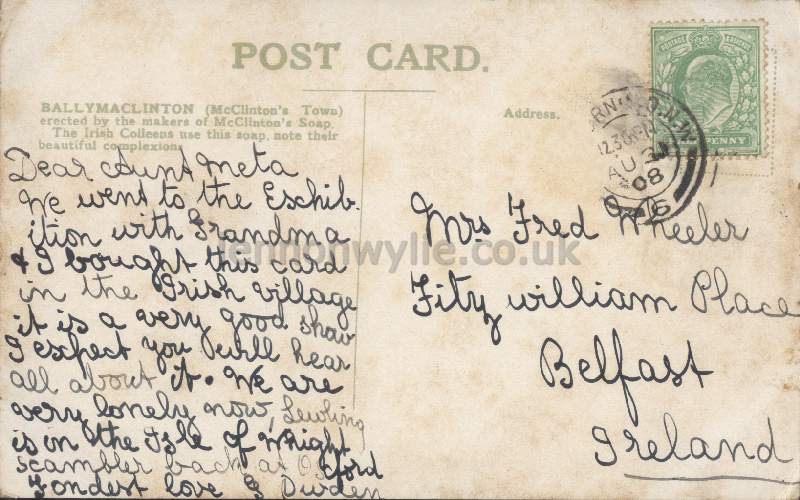 POST CARD.
BALLYMACLINTON (McClinton's Town)
erected by the makers of McClinton's Soap.
The Irish Colleens use this soap, note their
beautiful complexions
Address.
POSTAGE REVENUE
PENNY
12.30
AU
08
Dear Aunt Meta
We went to the Exhib-
ition with Grandma
& I bought this card
in the Irish village
it is a very good show
I expect you will hear
all about it. We are
very lonely now,
is in the Isle of Wright
scambler back at Oxford
Fondest love
Mrs Fred Wheeler
Fitzwilliam Place
Belfast
Ireland
lennonwylie.co.uk